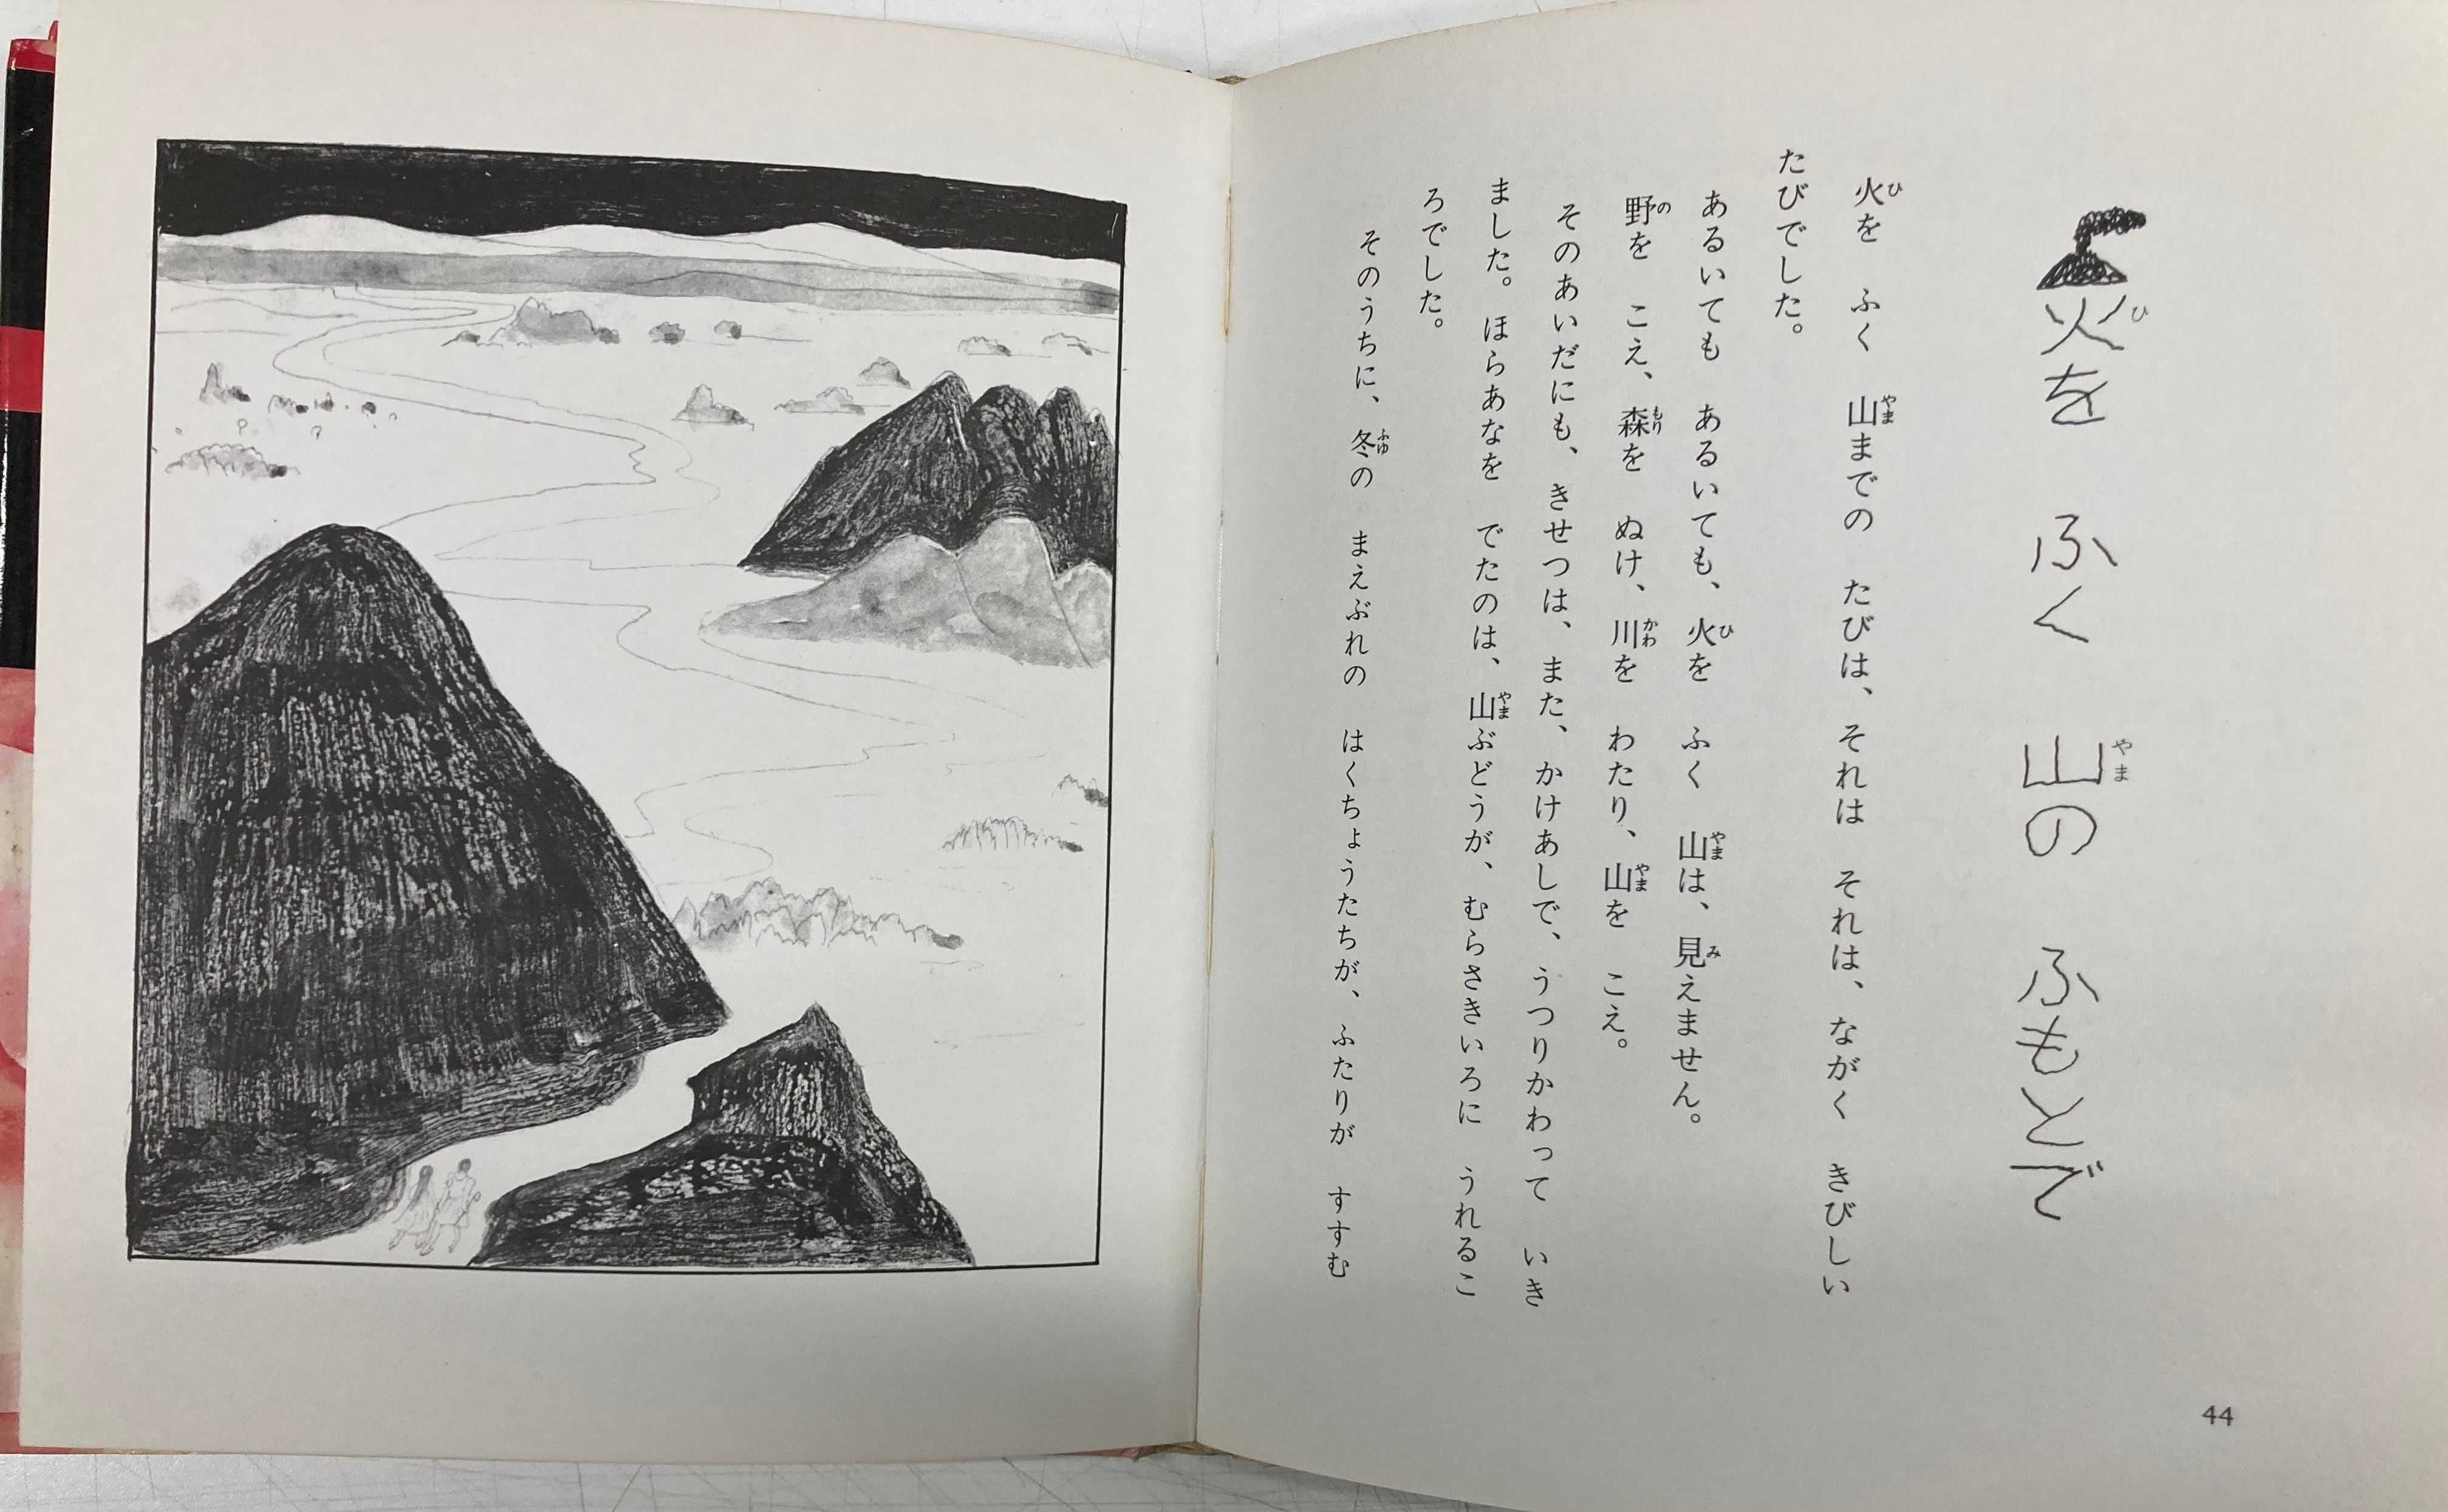 火を　ふく　山の　ふもとで
火を　ふく　山までの　たびは、それは　それは、ながく　きびしい
たびでした。
あるいても　あるいても、火を　ふく　山は、見えません。
野を　こえ、森を　ぬけ、川を　わたり、山を　こえ。
そのあいだにも、きせつは、また、かけあしで、うつりかわって　いき
ました。ほらあなを　でたのは、山ぶどうが、むらさきいろに　うれるこ
ろでした。
そのうちに、冬の　まえぶれの　はくちょうたちが、ふたりが　すすむ
44